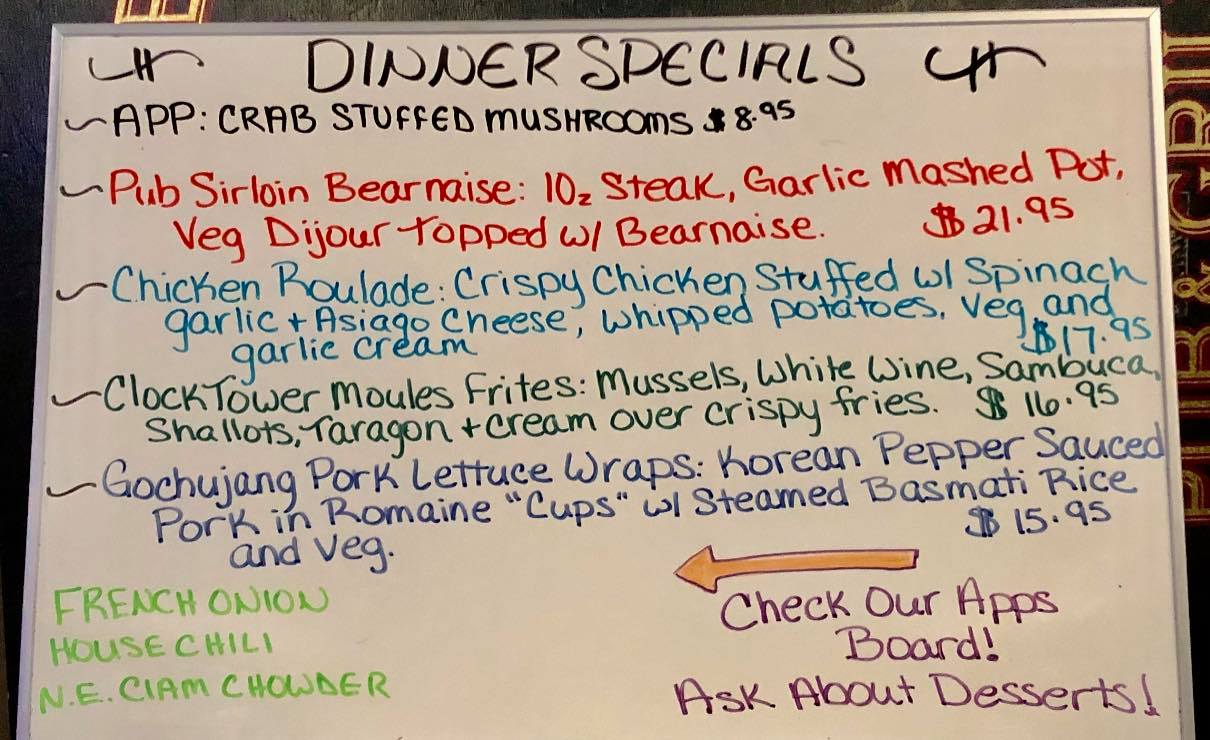 DINNER SPECIALS
~APP: CRAB STUFFED MUSHROOMS $8.95
~Pub Sirloin Bearnaise: 10z Steak, Garlic Mashed Pot,
Veg Dijour topped w/ Bearnaise. $21.95
~Chicken Roulade: Crispy Chicken Stuffed w/ Spinach
garlic + Asiago Cheese, whipped potatoes, veg and
garlic cream $17.95
~ClockTower Moules Frites: Mussels, White Wine, Sambuca,
Shallots, Taragon + cream over crispy fries. $16.95
~Gochujang Pork Lettuce Wraps: Korean Pepper Sauced
Pork in Romaine "Cups" w/ Steamed Basmati Rice
and veg. $15.95
FRENCH ONION
HOUSE CHILI
N.E. ClAM CHOWDER
Check Our Apps
Board!
Ask About Desserts!